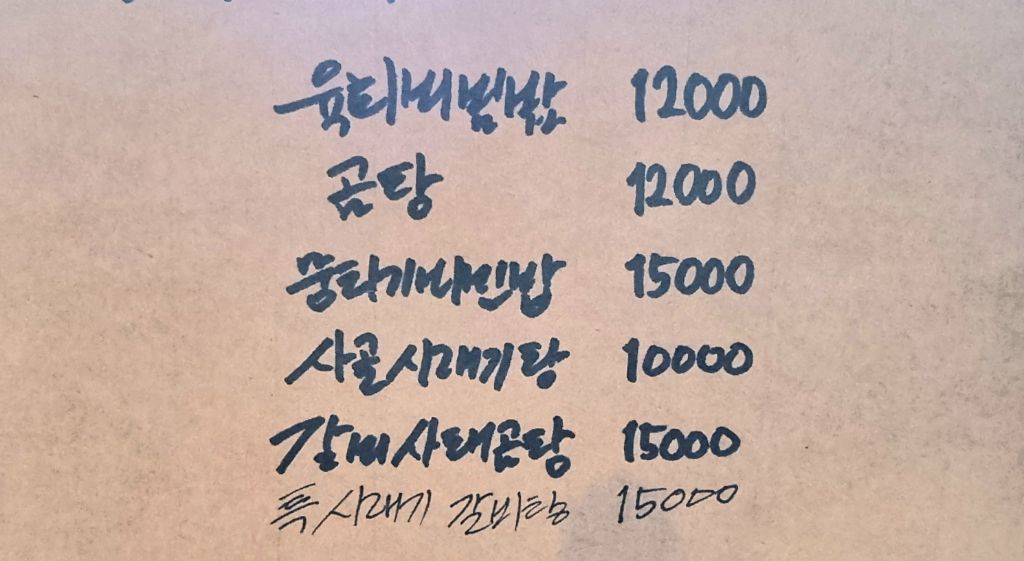 육회비빔밥 12000
곰탕 12000
뭉티기비빔밥 15000
사골시래기탕 10000
갈비사태곰탕 15000
특 시래기 갈비탕 15000